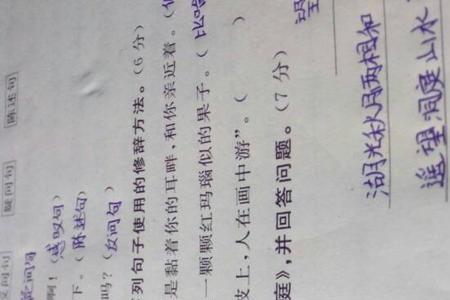 疑问句 陈述句
问句
啊！（感叹句）
下。（陈述句）
吗？（反问句）
列句子使用的修辞方法。（6分）
是黏着你的耳畔，和你亲近着。（
一颗颗红玛瑙似的果子。（比喻
上，人在画中游”。（
庭》，并回答问题。（7分）
望
湖光秋月两相和
遥望洞庭山水